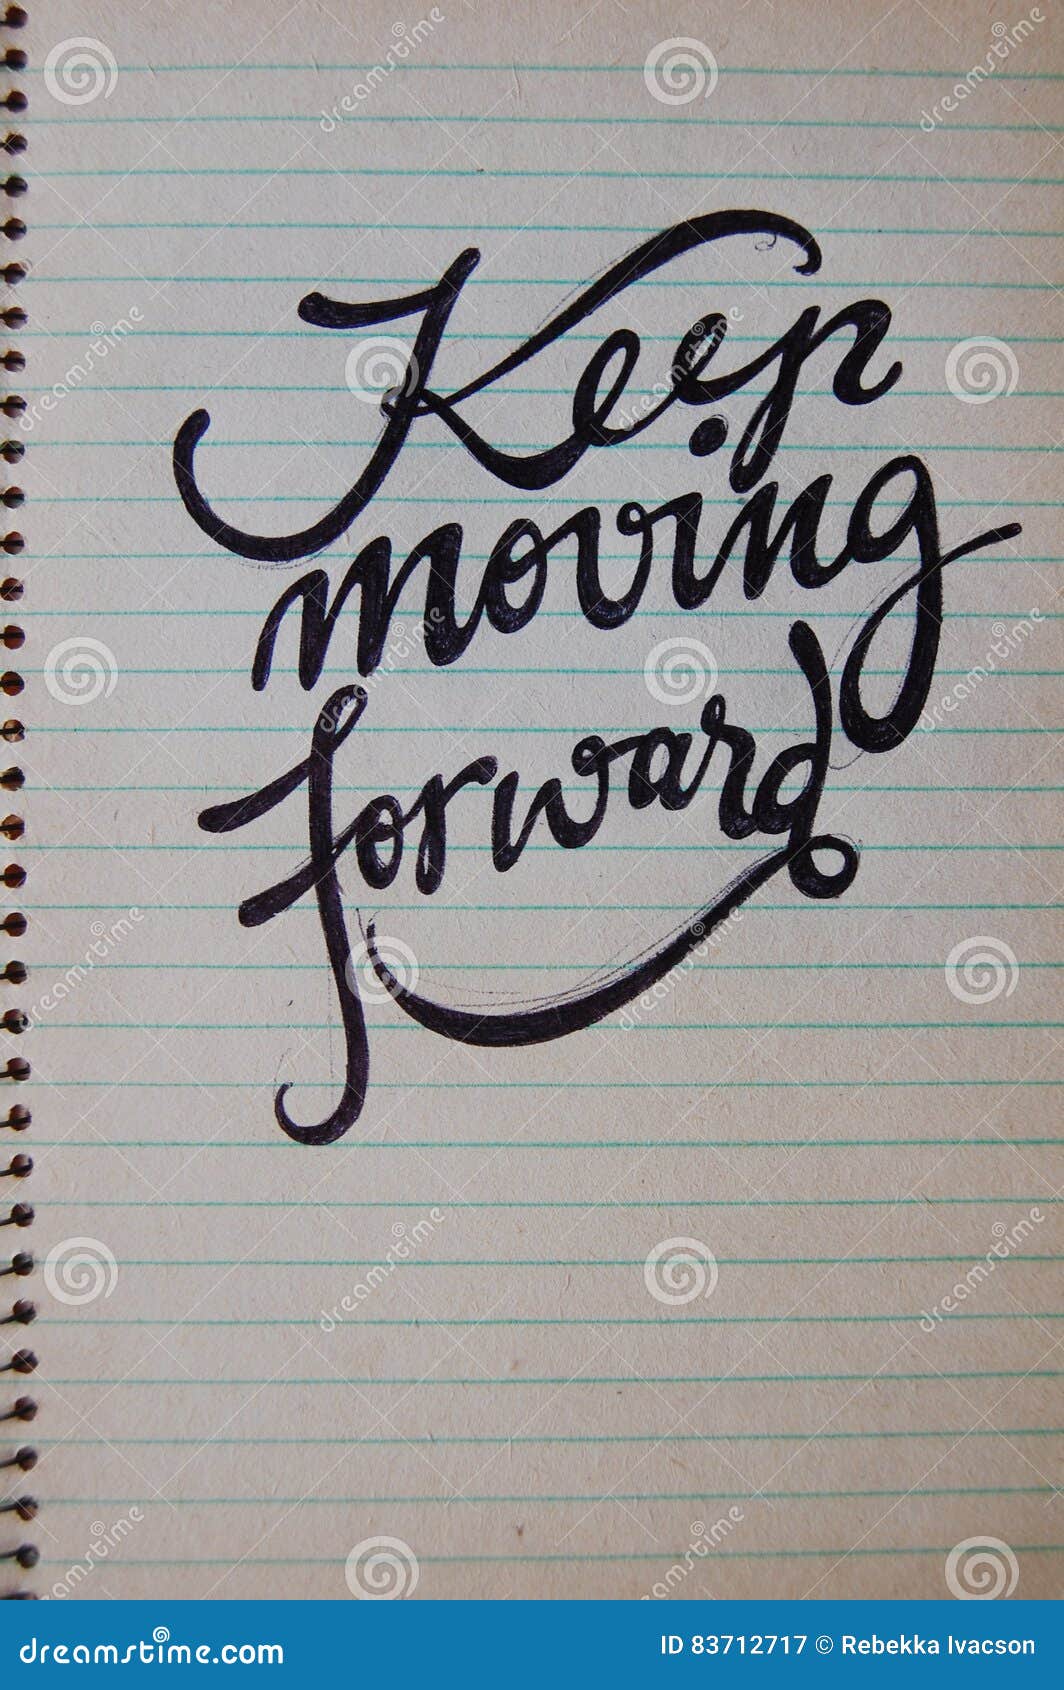 Keep
moving
forward
dreamstime.com
ID 83712717 © Rebekka Ivacson